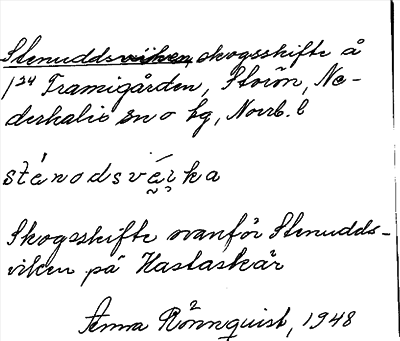 Stenuddsviken, skogsskifte å
1²⁴ Framigården, Storön, Ne-
derkalix sn o hg, Norrb. l
sténodsvḛ́ı̣ka
Skogsskifte ovanför Stenudds-
viken på Hastaskär
Anna Rönnquist, 1948